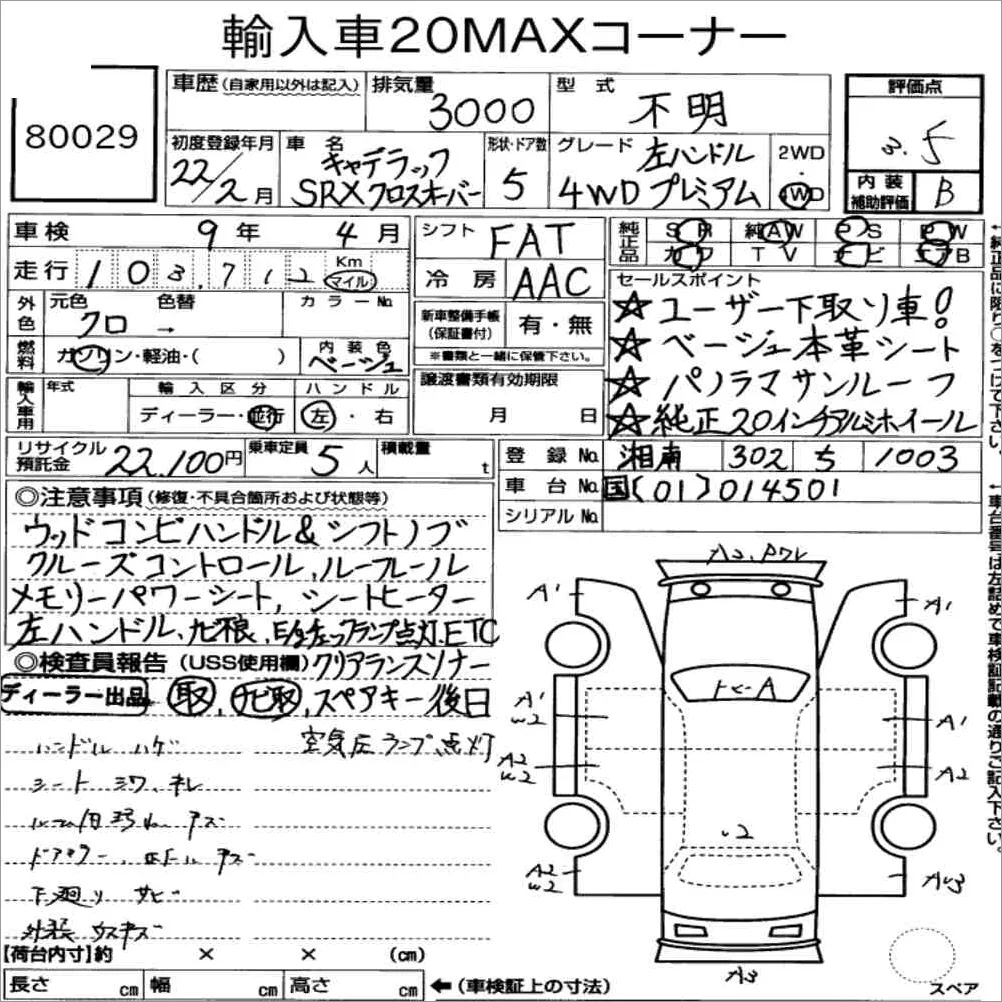 輸入車20MAXコーナー
80029
車歴 (自家用以外は記入)
排気量 3000
型式 不明
評価点 3.5
初度登録年月 22/2月
車名 キャデラック SRXクロスオーバー
形状・ドア数 5
グレード 左ハンドル 4WD プレミアム
2WD・4WD
内装補助評価 B
車検 9年 4月
シフト FAT
純正品 SR 純AW PS PW
カワ TV ナビ エアB
走行 103,712 Km マイル
冷房 AAC
セールスポイント
☆ユーザー下取り車!
☆ベージュ本革シート
☆パノラマサンルーフ
☆純正20インチアルミホイール
外色 元色 クロ → 色替
カラーNo
新車整備手帳(保証書付) 有・無
※書類と一緒に保管下さい。
燃料 ガソリン・軽油・( )
内装色 ベージュ
輸入車用 年式 輸入区分 ハンドル
ディーラー・並行 左・右
譲渡書類有効期限
月 日
リサイクル預託金 22,100円
乗車定員 5人
積載量 t
登録No 湘南 302 ち 1003
車台No 国(01)014501
シリアルNo
◎注意事項 (修復・不具合箇所および状態等)
ウッドコンビハンドル&シフトノブ
クルーズコントロール、ルーフレール
メモリーパワーシート、シートヒーター
左ハンドル、ナビ根、E/gチェックランプ点灯、ETC
◎検査員報告 (USS使用欄) クリアランスソナー
ディーラー出品 取、ナビ取、スペアキー後日
ハンドル ハゲ 空気圧ランプ点灯
シート シワ、キレ
ドアミラー
下廻り サビ
外装 ウスキズ
【荷台内寸】約 × × (cm)
長さ cm 幅 cm 高さ cm
←(車検証上の寸法)
A1
A1
A1 W2
A1
A2 W2
A2
U2
A2 W2
A3
スペア
←純正品に限り○をつけて下さい。
←車台番号は左詰めで車検証記載の通りご記入下さい。